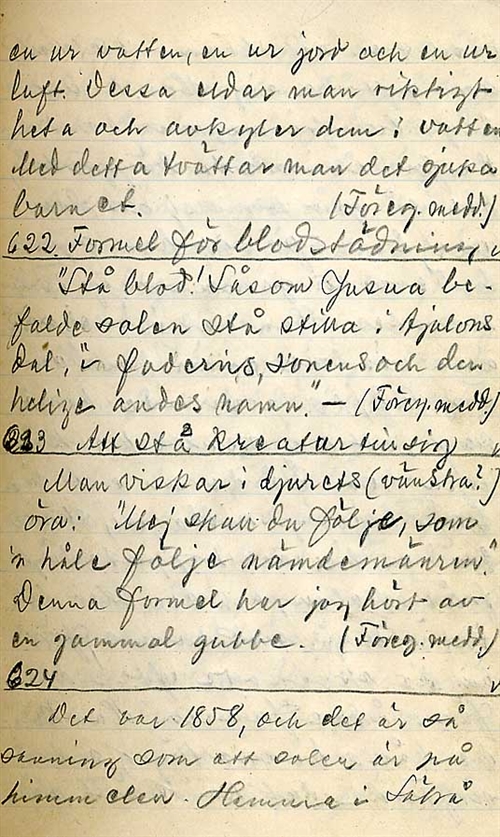 en ur vatten, en ur jord och en ur
luft. Dessa eldar man riktigt
heta och avkyler dem i vatten
Med detta tvättar man det sjuka
barnet. (Föreg. medd.)
622. Formel för blodstädning
"Stå blod! Såsom Josua be-
falde solen stå stilla i Ajalons
dal, i faderns, sonens och den
helige andes namn." — (Föreg. medd.)
623 Att stå kreatur till sig
Man viskar i djurets (vänstra?)
öra: "Mej skau du följe, som
'n håle följe nämdemännen."
Denna formel har jag hört av
en gammal gubbe. (Föreg. medd.)
624
Det var 1858, och det är så
sanning som att solen är på
himmelen. Hemma i Sätra